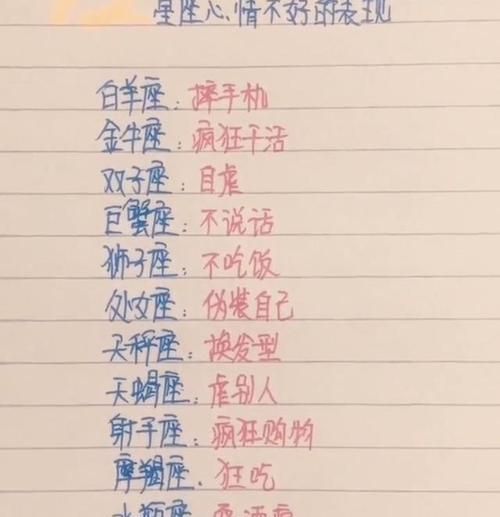 星座心情不好的表现
白羊座：摔手机
金牛座：疯狂干活
双子座：自虐
巨蟹座：不说话
狮子座：不吃饭
处女座：伪装自己
天秤座：换发型
天蝎座：虐别人
射手座：疯狂购物
摩羯座．狂吃
水瓶座